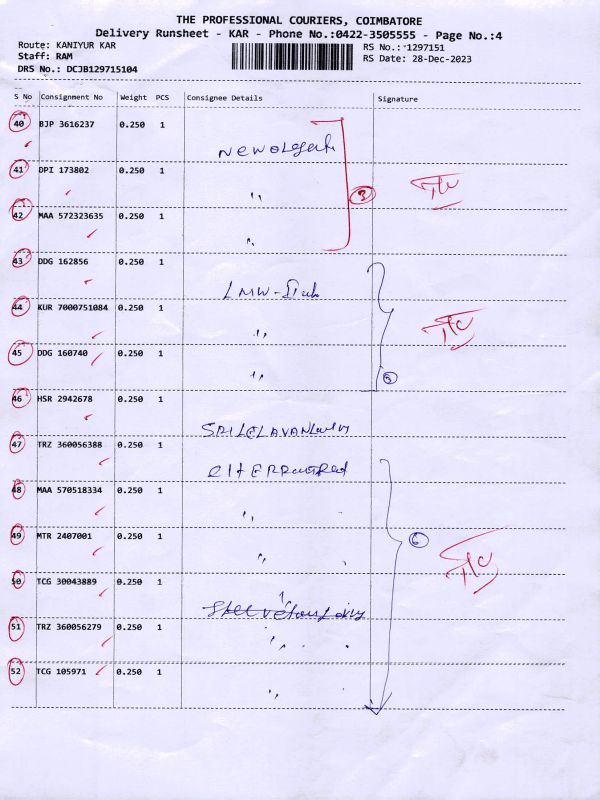 THE PROFESSIONAL COURIERS, COIMBATORE
Delivery Runsheet - KAR - Phone No.:0422-3505555 - Page No.:4
Route: KANIYUR KAR RS No.: 1297151
Staff: RAM RS Date: 28-Dec-2023
DRS No.: DCJB129715104
S No Consignment No Weight PCS Consignee Details Signature
40 BJP 3616237 0.250 1
41 DPI 173802 0.250 1
3
42 MAA 572323635 0.250 1
43 DDG 162856 0.250 1
LMW-
44 KUR 7000751084 0.250 1
45 DDG 160740 0.250 1
3
46 HSR 2942678 0.250 1
47 TRZ 360056388 0.250 1
48 MAA 570518334 0.250 1
49 MTR 2407001 0.250 1
6
50 TCG 30043889 0.250 1
51 TRZ 360056279 0.250 1
52 TCG 105971 0.250 1